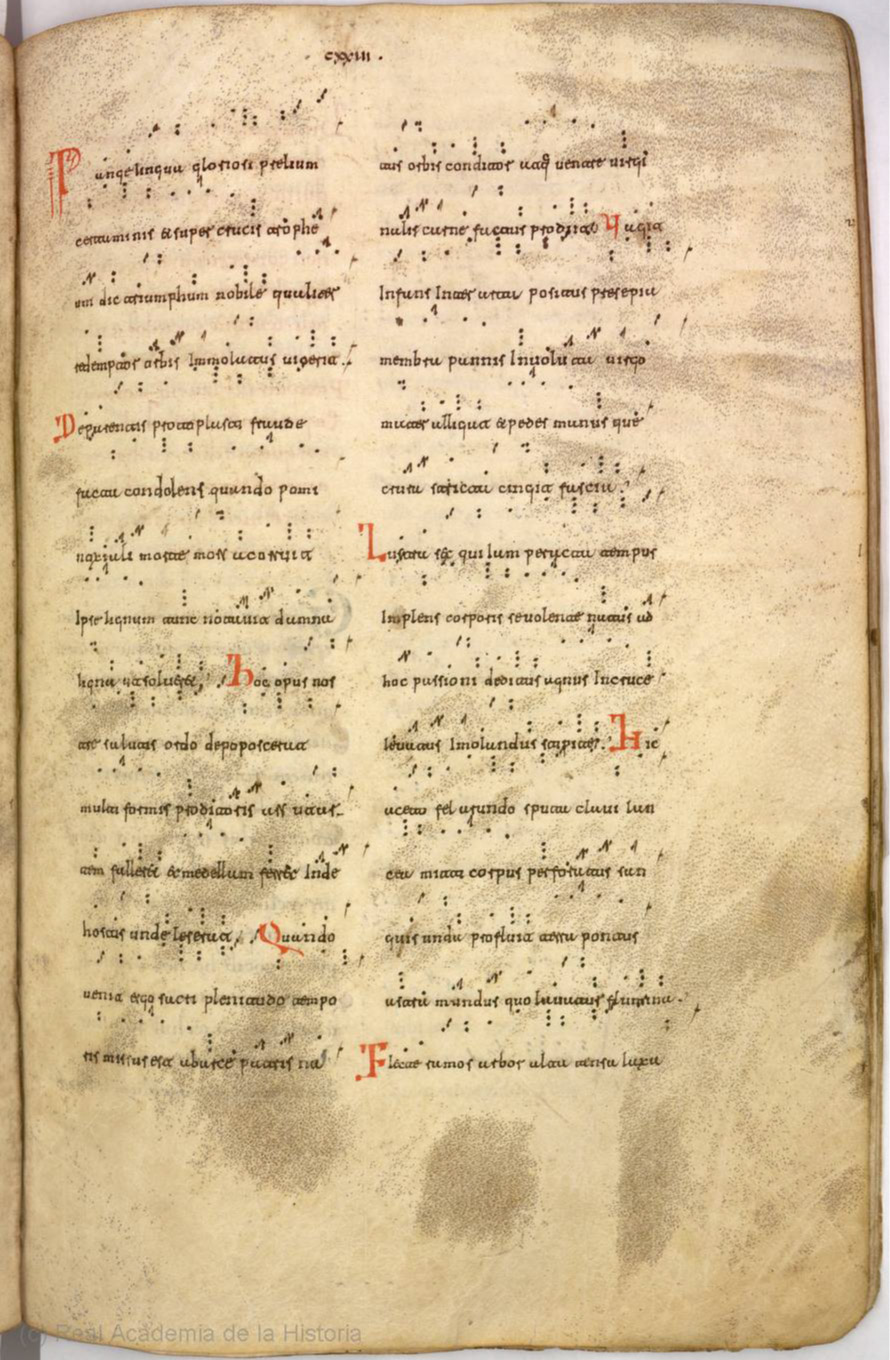 cxxiii.
Pange lingua gloriosi prelium
certaminis et super crucis trophe
um dic triumphum nobile qualiter
redemptor orbis Immolatus uicerit.
De parentis protoplasti fraude
facta condolens quando pomi
noxiali morte morsu conruit
Ipse lignum tunc notauit damna
ligni ut solueret. Hoc opus nos
tre salutis ordo depoposcerat
multi formis proditoris ars ut ars
tem falleret et medellam ferret Inde
hostis unde leserat. Quando
uenit ergo sacri plenitudo tempo
ris missus est ab arce patris na
tus orbis conditor atq uentre uirgi
nalis carne factus prodiit. Vagit
Infans Inter arta positus presepia
membra pannis Inuoluta uirgo
mater alligat et pedes manus que
crura stricta cingit fascia.
Lustra sex qui iam peracta tempus
Implens corporis se uolente natus ad
hoc passioni deditus agnus In cruce
leuatus Imolandus stipite. Hic
acetu fel arundo sputa claui lan
cea mite corpus perforatus san
guis unda profluit terra pontus
astra mundus quo lauantur flumina.
Flecte ramos arbor alta tensa laxa
(c) Real Academia de la Historia